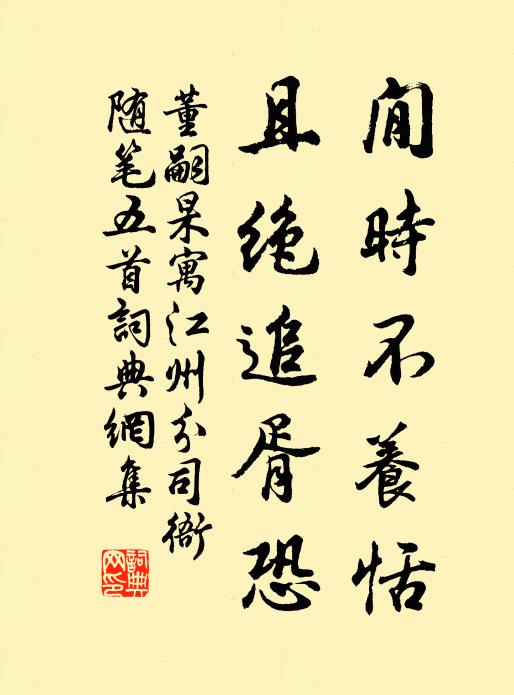 閒時不養恬
且絕追胥恐
董嗣杲寓江州分司衙
随笔五首詞典網集
詞典网印